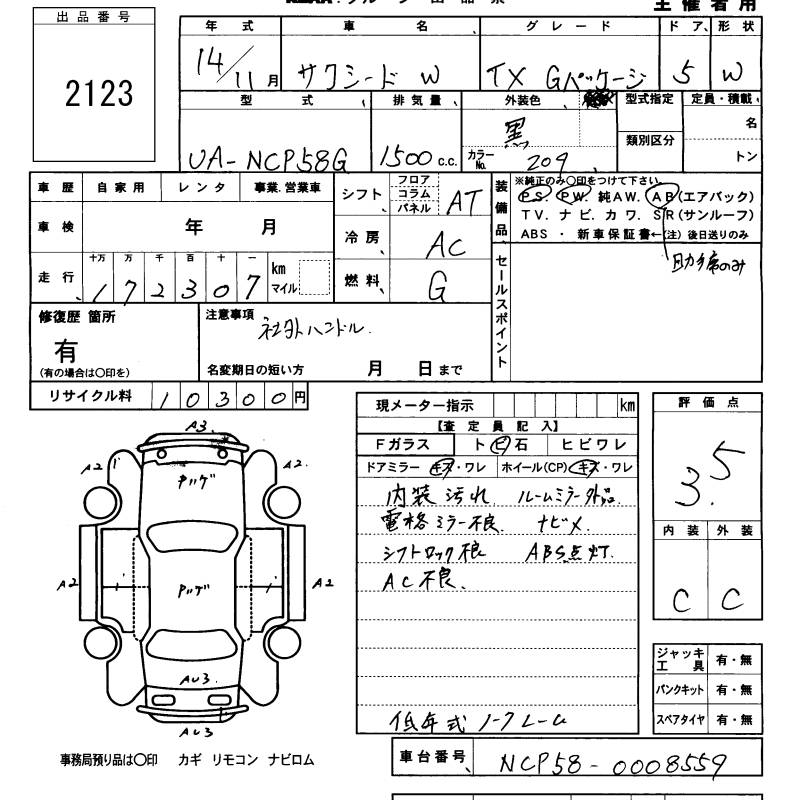 主催者用
出品番号
2123
年式 車名 グレード ドア 形状
14/11月 サクシード W TX Gパッケージ 5 W
型式 排気量 外装色 型式指定 定員・積載
UA-NCP58G 1500 c.c. 黒 カラーNo. 209 類別区分 名 トン
車歴 自家用 レンタ 事業.営業車
車検 年 月
走行 十万 万 千 百 十 一
172307 km マイル
シフト フロア コラム パネル AT
冷房 AC
燃料 G
装備品
※純正のみ〇印をつけて下さい。
PS. PW. 純AW. AB(エアバック)
TV. ナビ. カワ. SR(サンルーフ)
ABS ・ 新車保証書←(注)後日送りのみ
助手席のみ
セールスポイント
修復歴 箇所
有
(有の場合は〇印を)
注意事項
社外ハンドル
名変期日の短い方 月 日まで
リサイクル料 10300円
現メーター指示 km
【査定員記入】
Fガラス ト ビ 石 ヒビワレ
ドアミラー キズ・ワレ ホイール(CP) キズ・ワレ
内装 汚れ ルームミラー外品
電格ミラー不良 ナビ〆
シフトロック不良 ABS点灯
AC不良
低年式 ノークレーム
評価点
3.5
内装 外装
C C
ジャッキ工具 有・無
パンクキット 有・無
スペアタイヤ 有・無
A3
A2 1 A2
A2 1 1 A2
AU3
AU3
事務局預り品は〇印 カギ リモコン ナビロム
車台番号 NCP58-0008559